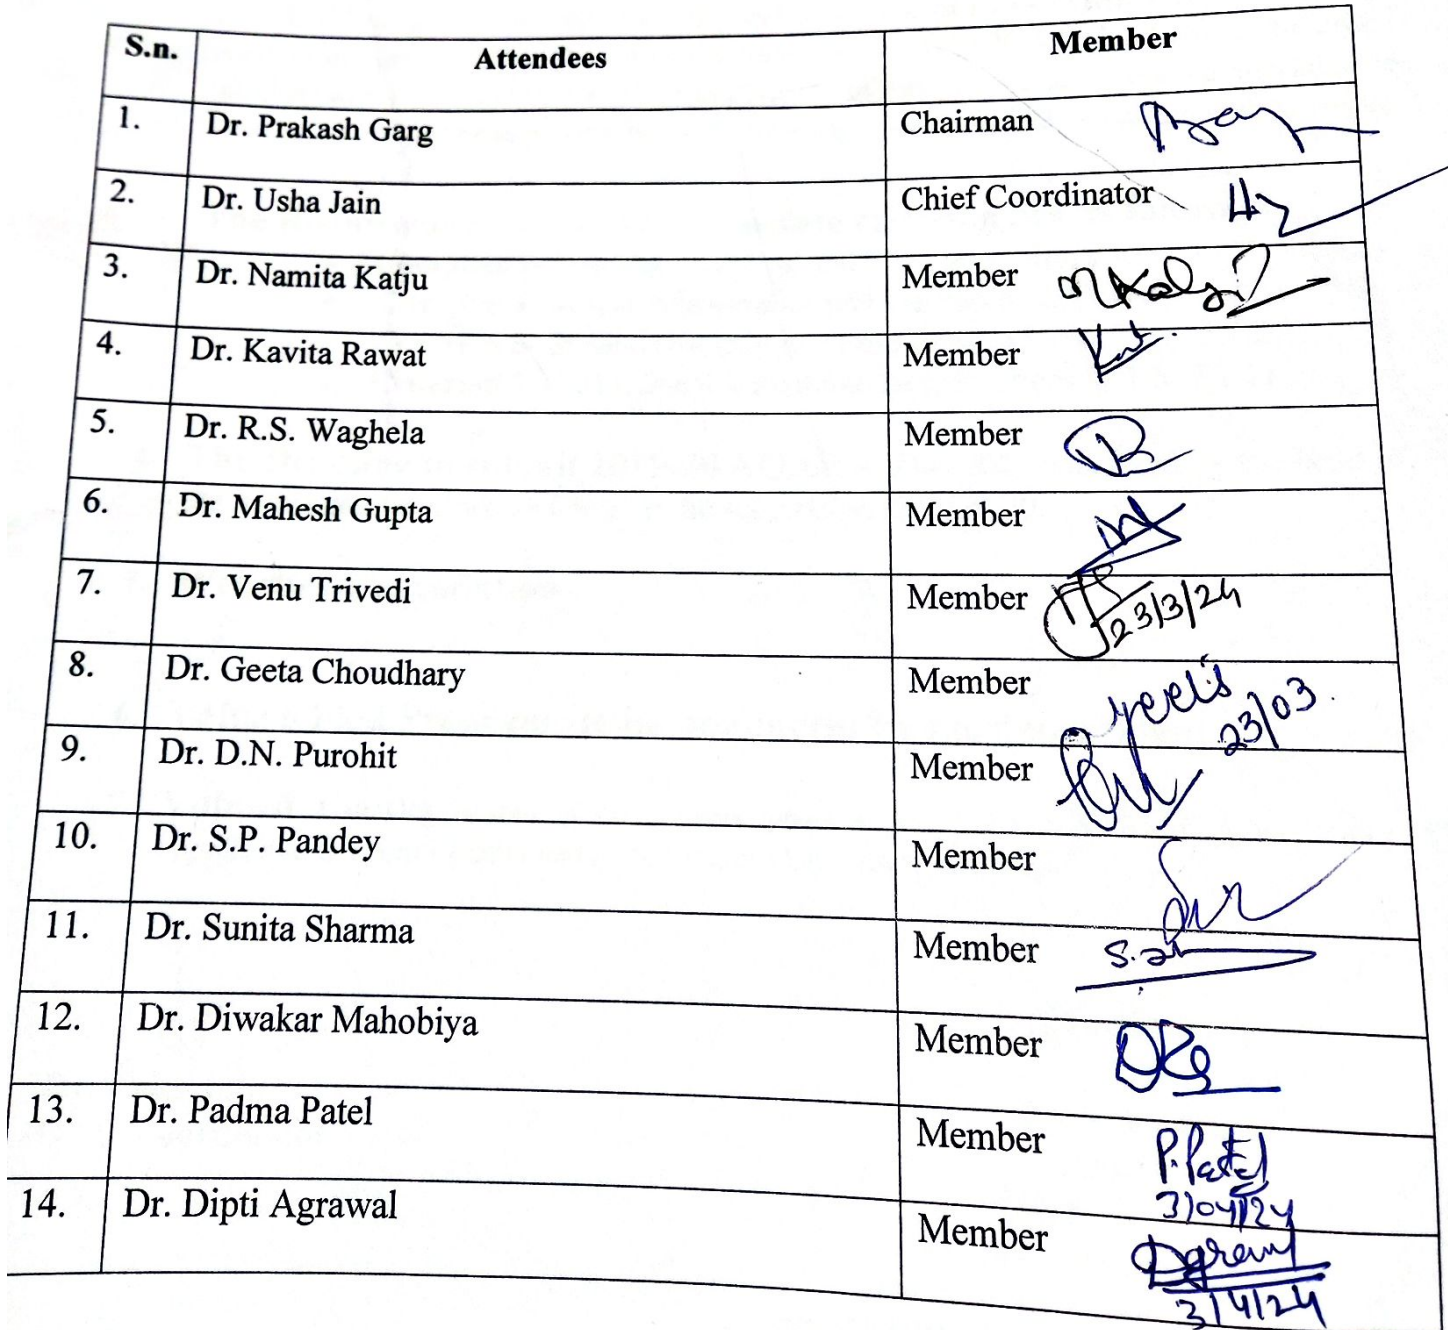 S.n. Attendees Member
1. Dr. Prakash Garg Chairman
2. Dr. Usha Jain Chief Coordinator
3. Dr. Namita Katju Member
4. Dr. Kavita Rawat Member
5. Dr. R.S. Waghela Member
6. Dr. Mahesh Gupta Member
7. Dr. Venu Trivedi Member 23/3/24
8. Dr. Geeta Choudhary Member
23/03
9. Dr. D.N. Purohit Member
10. Dr. S.P. Pandey Member
11. Dr. Sunita Sharma Member
12. Dr. Diwakar Mahobiya Member
13. Dr. Padma Patel Member P.Patel
3/04/24
14. Dr. Dipti Agrawal Member
3/4/24